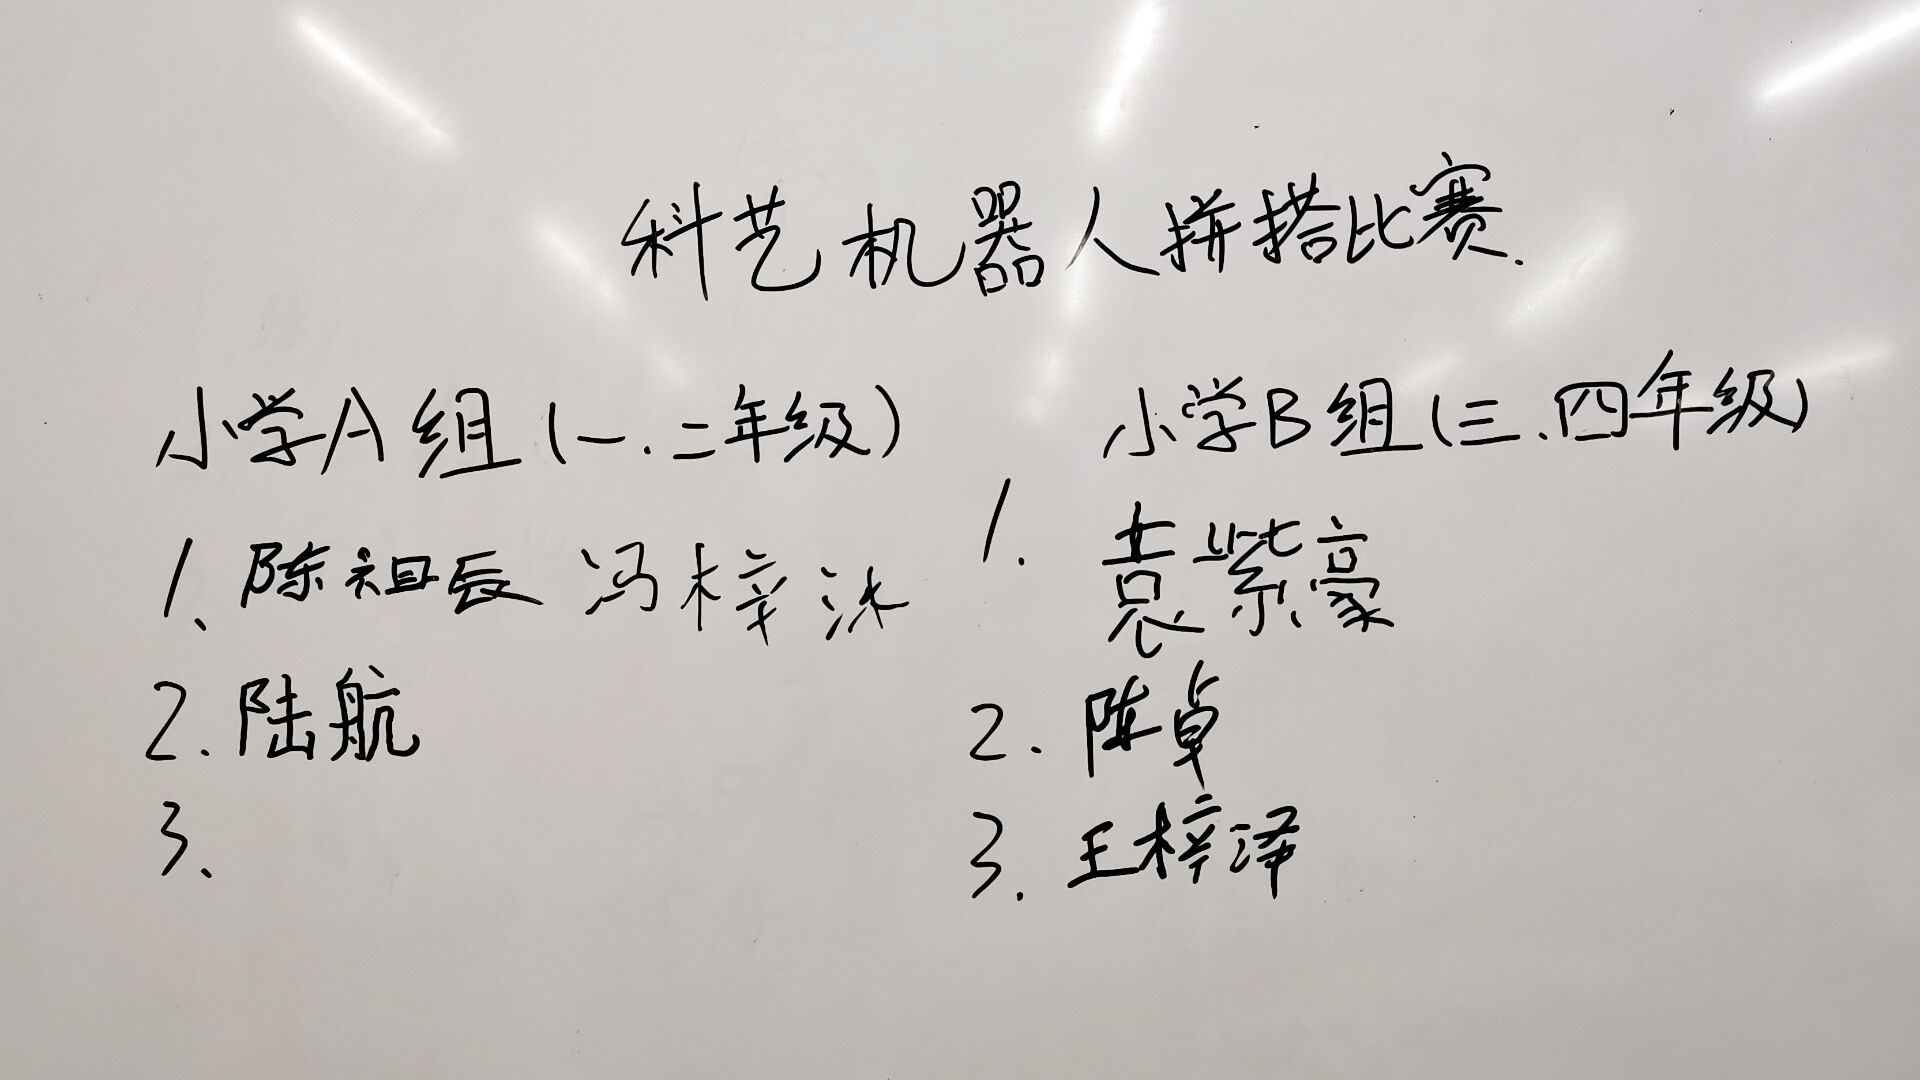 科艺机器人拼搭比赛.
小学A组(一.二年级)
1、陈祖辰 冯梓沐
2.陆航
3、
小学B组(三.四年级)
1.袁紫豪
2.陈卓
3.王梓泽